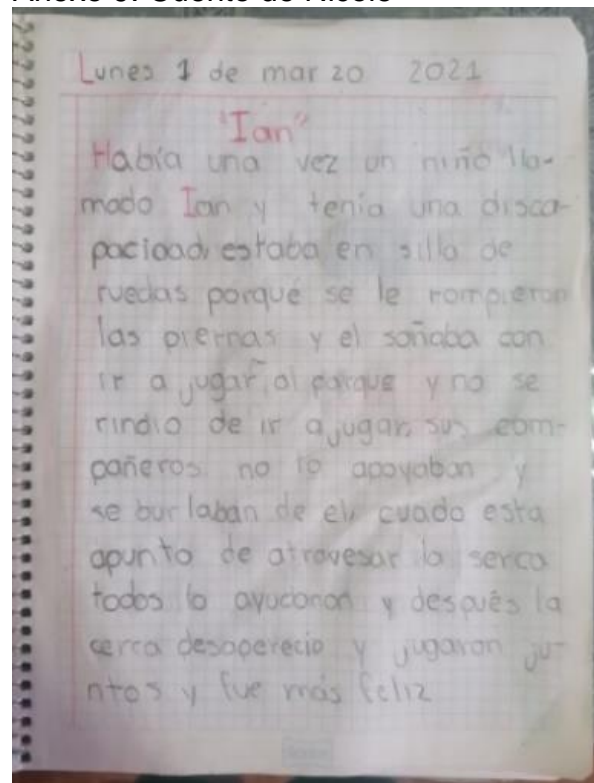 Lunes 1 de marzo 2021
"Ian"
Había una vez un niño lla-
mado Ian y tenía una disca-
pacidad, estaba en silla de
ruedas porqué se le rompieron
las piernas y el soñaba con
ir a jugar, al parque y no se
rindio de ir a jugar, sus com-
pañeros no lo apoyaban y
se burlaban de el, cuado esta
apunto de atravesar la serca
todos lo ayudaron y después la
cerca desaperecio y jugaron ju-
ntos y fue más feliz